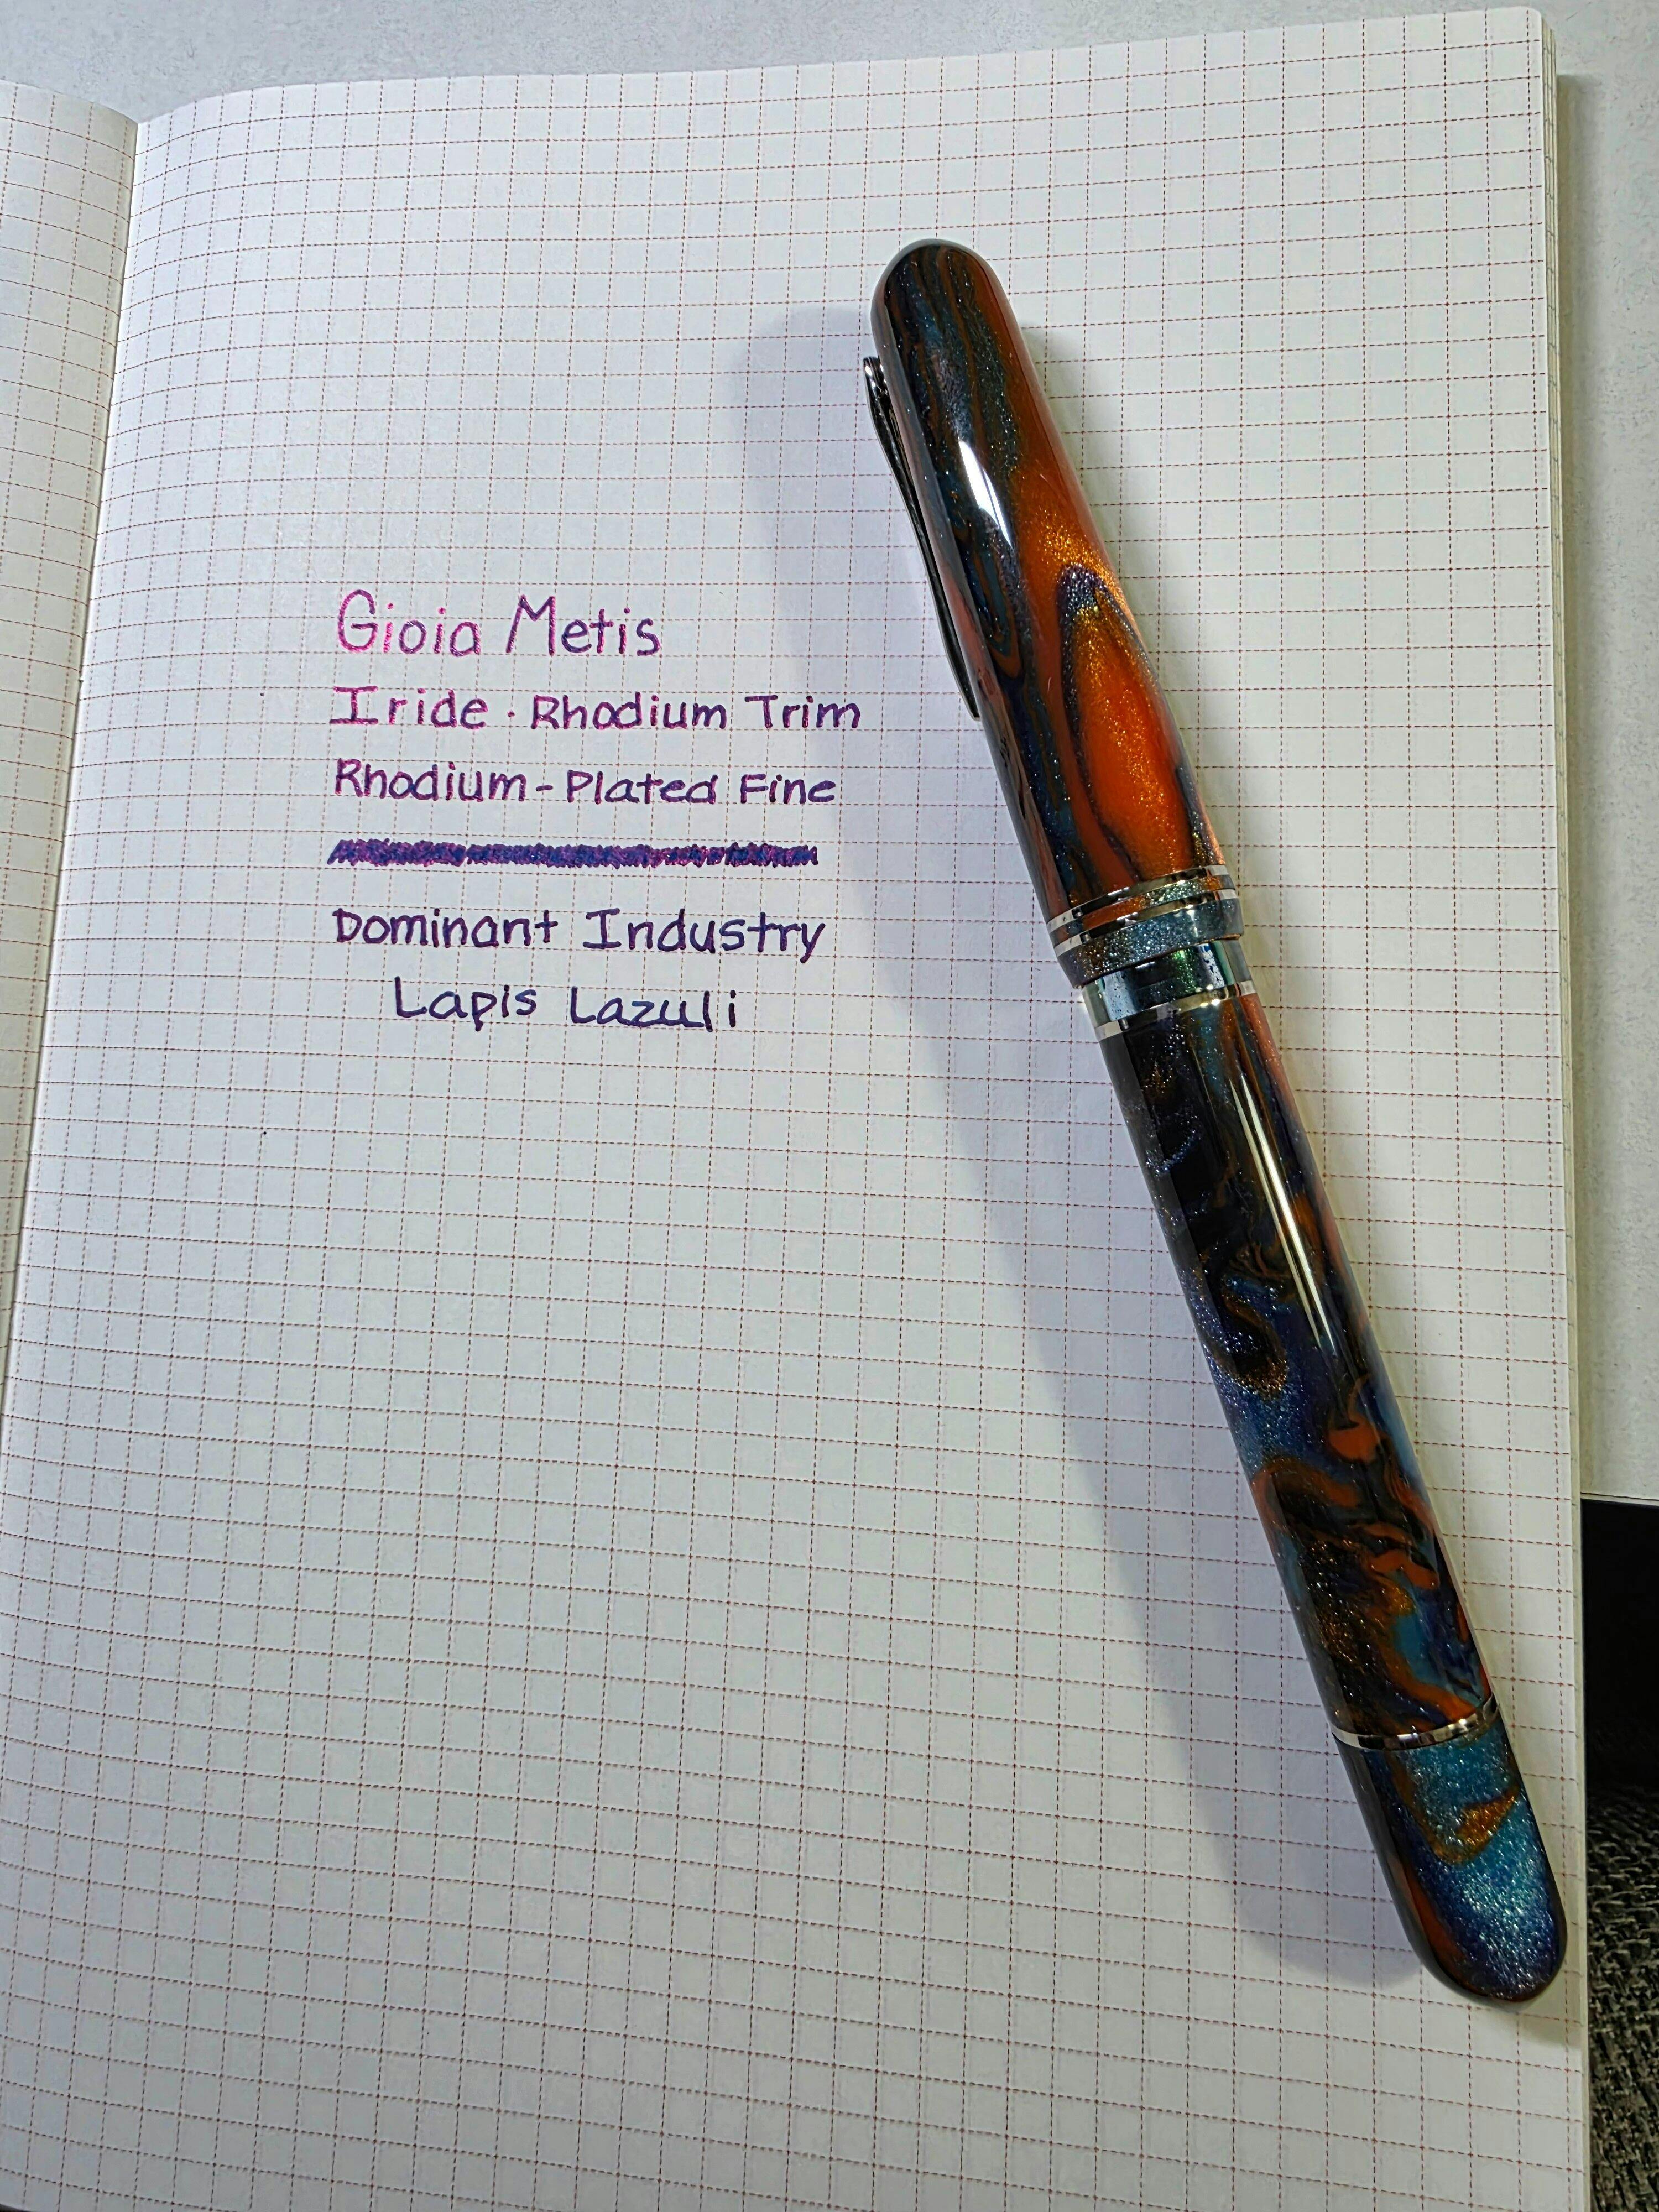 Gioia Metis
Iride · Rhodium Trim
Rhodium-Plated Fine
Dominant Industry
Lapis Lazuli